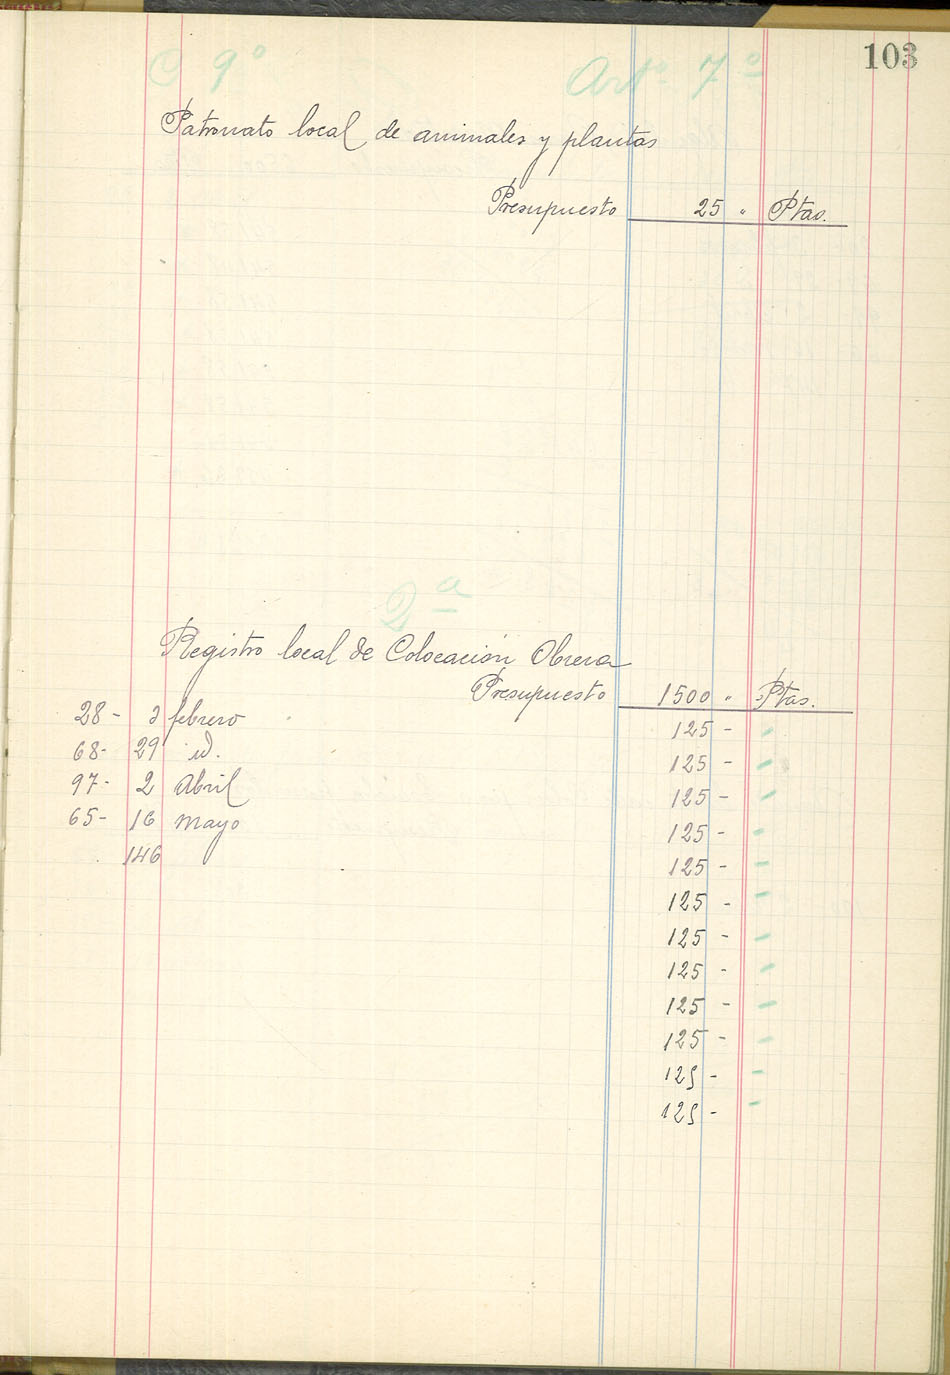 103
C 9º Artº 7º
Patronato local de animales y plantas
Presupuesto 25 " Ptas.
2ª
Registro local de Colocación Obrera
Presupuesto 1500 " Ptas.
28 - 2 febrero 125 -
68 - 29 id. 125 -
97 - 2 Abril 125 -
65 - 16 mayo 125 -
146 125 -
125 -
125 -
125 -
125 -
125 -
125 -
125 -